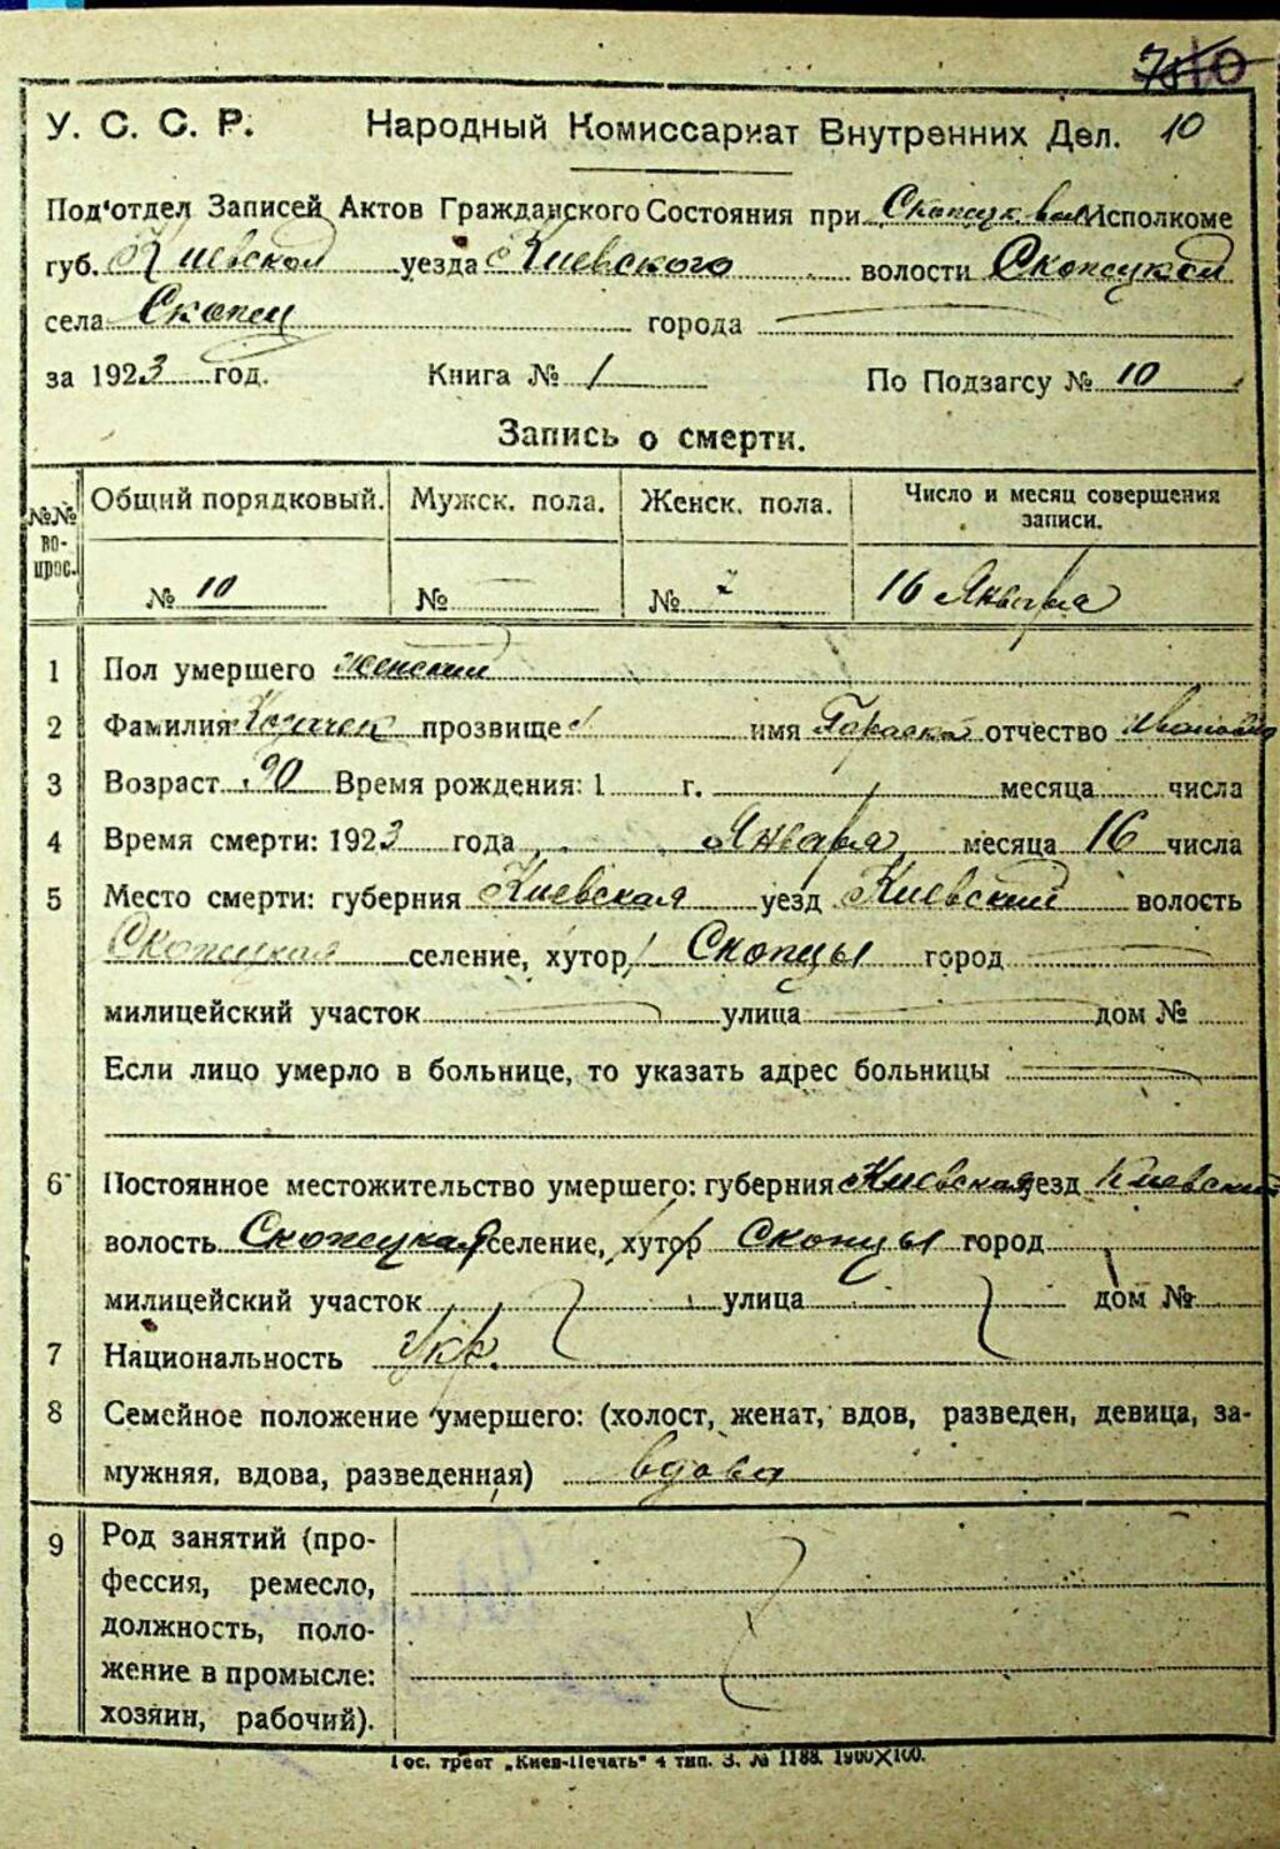 10
У. С. С. Р. Народный Комиссариат Внутренних Дел. 10
Под'отдел Записей Актов Гражданского Состояния при Скопецк. Исполкоме
губ. Киевской уезда Киевского волости Скопецкой
села Скопец города
за 1923 год. Книга № 1 По Подзагсу № 10
Запись о смерти.
№№ вопрос. Общий порядковый. Мужск. пола. Женск. пола. Число и месяц совершения записи.
№ 10 № № 7 16 Января
1 Пол умершего женский
2 Фамилия Козачек прозвище имя отчество Ивановна
3 Возраст 90 Время рождения: 1 г. месяца числа
4 Время смерти: 1923 года Января месяца 16 числа
5 Место смерти: губерния Киевская уезд Киевский волость
Скопецкая селение, хутор Скопцы город
милицейский участок улица дом №
Если лицо умерло в больнице, то указать адрес больницы
6 Постоянное местожительство умершего: губерния Киевская уезд Киевский
волость Скопецкая селение, хутор Скопцы город
милицейский участок улица дом №
7 Национальность Укр.
8 Семейное положение умершего: (холост, женат, вдов, разведен, девица, за-
мужняя, вдова, разведенная) вдова
9 Род занятий (про-
фессия, ремесло,
должность, поло-
жение в промысле:
хозяин, рабочий).
Гос. трест „Киев-Печать" 4 тип. З. № 1188. 1900×100.